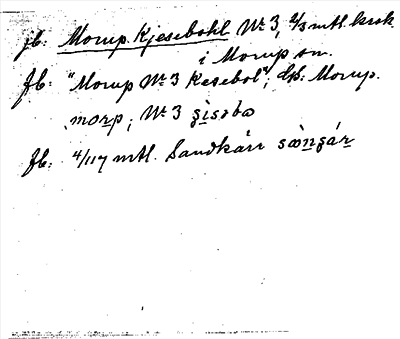 fb: Morup Kjesebohl Nr 3, 2/3 mtl. krsk.
i Morup sn.
fb: "Morup Nr 3 Kesebol"; ds: Morup.
morp; Nr 3
fb: 4/117 mtl. Sandkärr